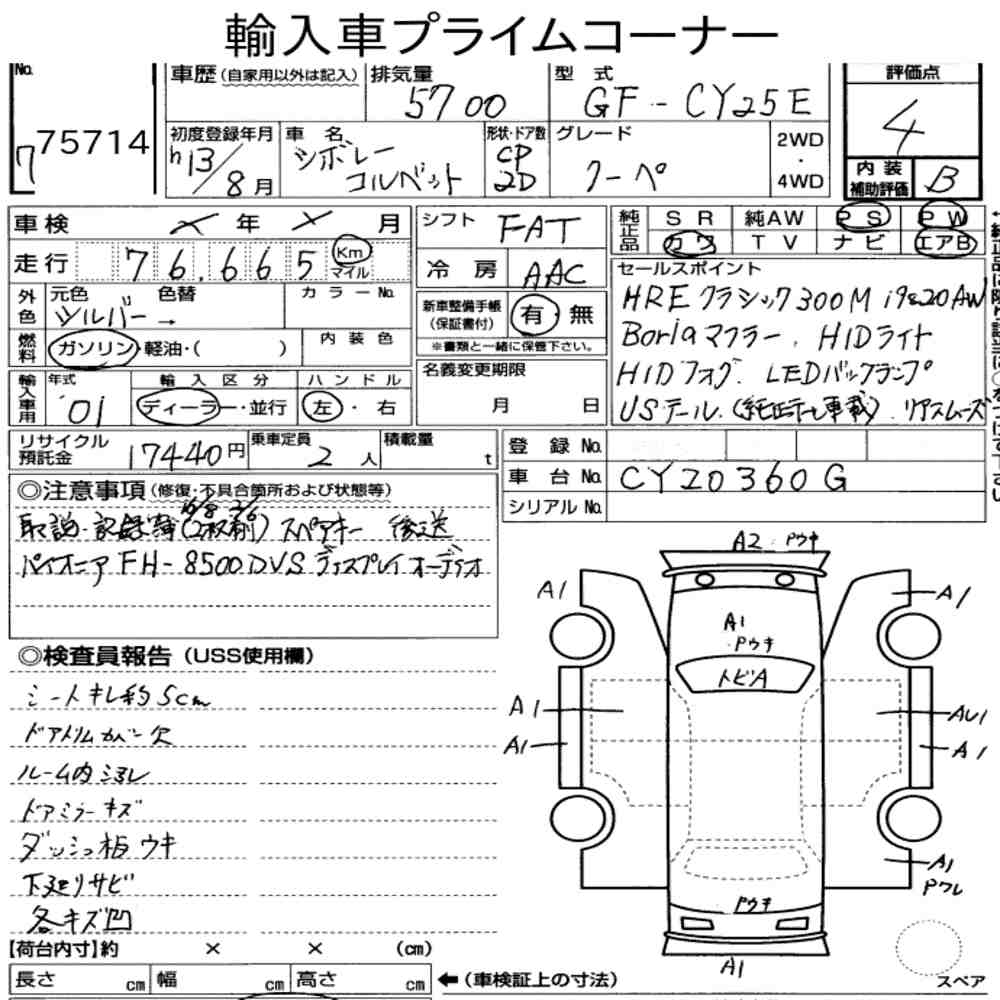 輸入車プライムコーナー
No.
7
75714
車歴 (自家用以外は記入)
排気量
5700
型 式
GF - CY25E
評価点
4
初度登録年月
h13/8月
車 名
シボレー
コルベット
形状・ドア数
CP
2D
グレード
クーペ
2WD
・
4WD
内 装
補助評価
B
車検
年
月
走行
76,665
Km
マイル
外色
元色
シルバー →
色替
カラーNo.
燃料
ガソリン・軽油・( )
内 装 色
輸入車用
年式
'01
輸 入 区 分
ディーラー・並行
ハ ン ド ル
左 ・ 右
シフト
FAT
冷 房
AAC
新車整備手帳
(保証書付)
有・無
※書類と一緒に保管下さい。
名義変更期限
月 日
純正品
SR
純AW
PS
PW
カワ
TV
ナビ
エアB
セールスポイント
HREクラシック300M 19&20AW
Borlaマフラー. HIDライト
HIDフォグ. LEDバックランプ
USテール.(純正テール車載). リアスムーズ
リサイクル
預託金
17440円
乗車定員
2人
積載量
t
登 録 No.
車 台 No.
CY20360G
シリアル No.
◎注意事項 (修復・不具合箇所および状態等)
取説・記録簿(2枚 前) スペアキー 後送
パイオニア FH-8500DVS ディスプレイオーディオ
◎検査員報告 (USS使用欄)
シートキレ約5cm
ドアトリムカバー欠
ルーム内ヨゴレ
ドアミラーキズ
ダッシュ板ウキ
下廻りサビ
各キズ凹
A2・Pウキ
A1
A1
A1
・Pウキ
トビA
A1
AU1
A1
A1
A1
Pワレ
Pウキ
A1
スペア
【荷台内寸】約 × × (cm)
長さ cm
幅 cm
高さ cm
← (車検証上の寸法)